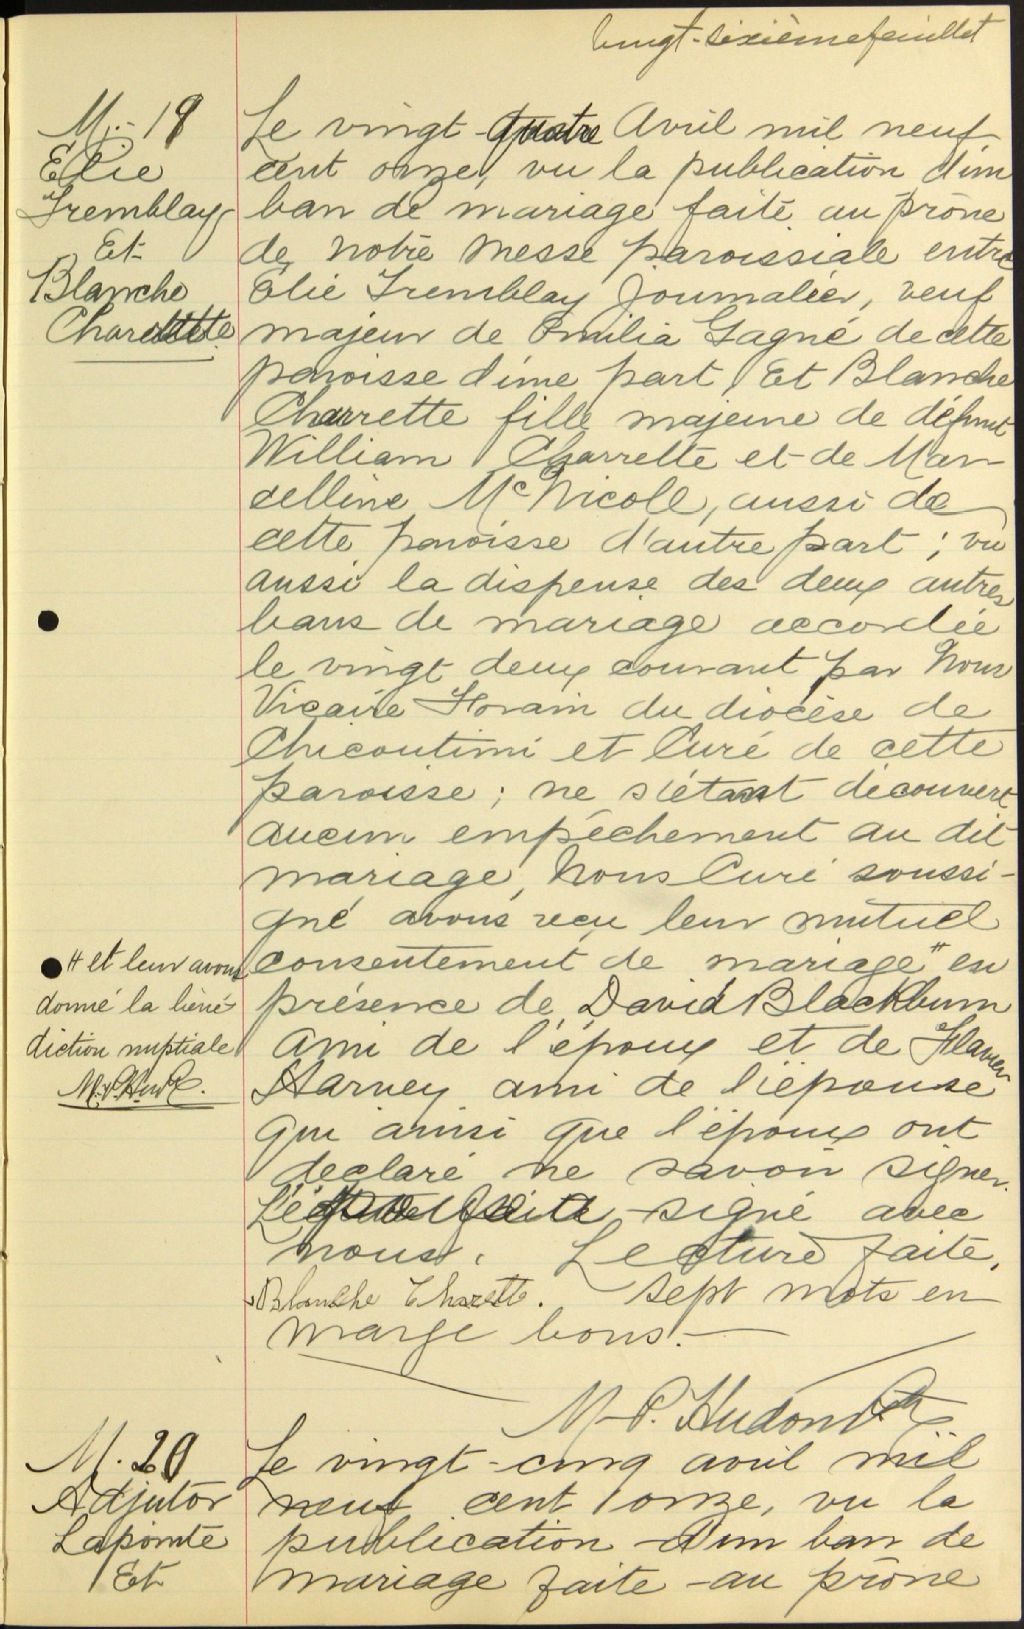 vingt-sixième feuillet
M.- 19
Elie
Tremblay
Et
Blanche
Charette
Le vingt-quatre Avril mil neuf
cent onze, vu la publication d'un
ban de mariage faite au prône
de notre messe paroissiale entre
Elie Tremblay Journalier, veuf
majeur de Emilia Gagné de cette
paroisse d'une part, Et Blanche
Charrette fille majeure de défunt
William Charrette et de Mar-
celline McNicole, aussi de
cette paroisse d'autre part ; vu
aussi la dispense des deux autres
bans de mariage accordée
le vingt deux courant par Nous
Vicaire Forain du diocèse de
Chicoutimi et Curé de cette
paroisse ; ne s'étant découvert
aucun empêchement au dit
mariage, Nous Curé soussi-
gné avons reçu leur mutuel
consentement de mariage # en
présence de David Blackburn
ami de l'époux et de Flavien
Harvey ami de l'épouse
qui ainsi que l'époux ont
declaré ne savoir signer.
L'épouse a signé avec
nous. Lecture faite.
Blanche Charette. Sept mots en
marge bons.-
# et leur avons
donné la béné
diction nuptiale
M.P.H. Ptre.
M.P. Hudon Ptre
M. 20
Adjutor
Lapointe
Et
Le vingt-cinq avril mil
neuf cent onze, vu la
publication d'un ban de
mariage faite au prône